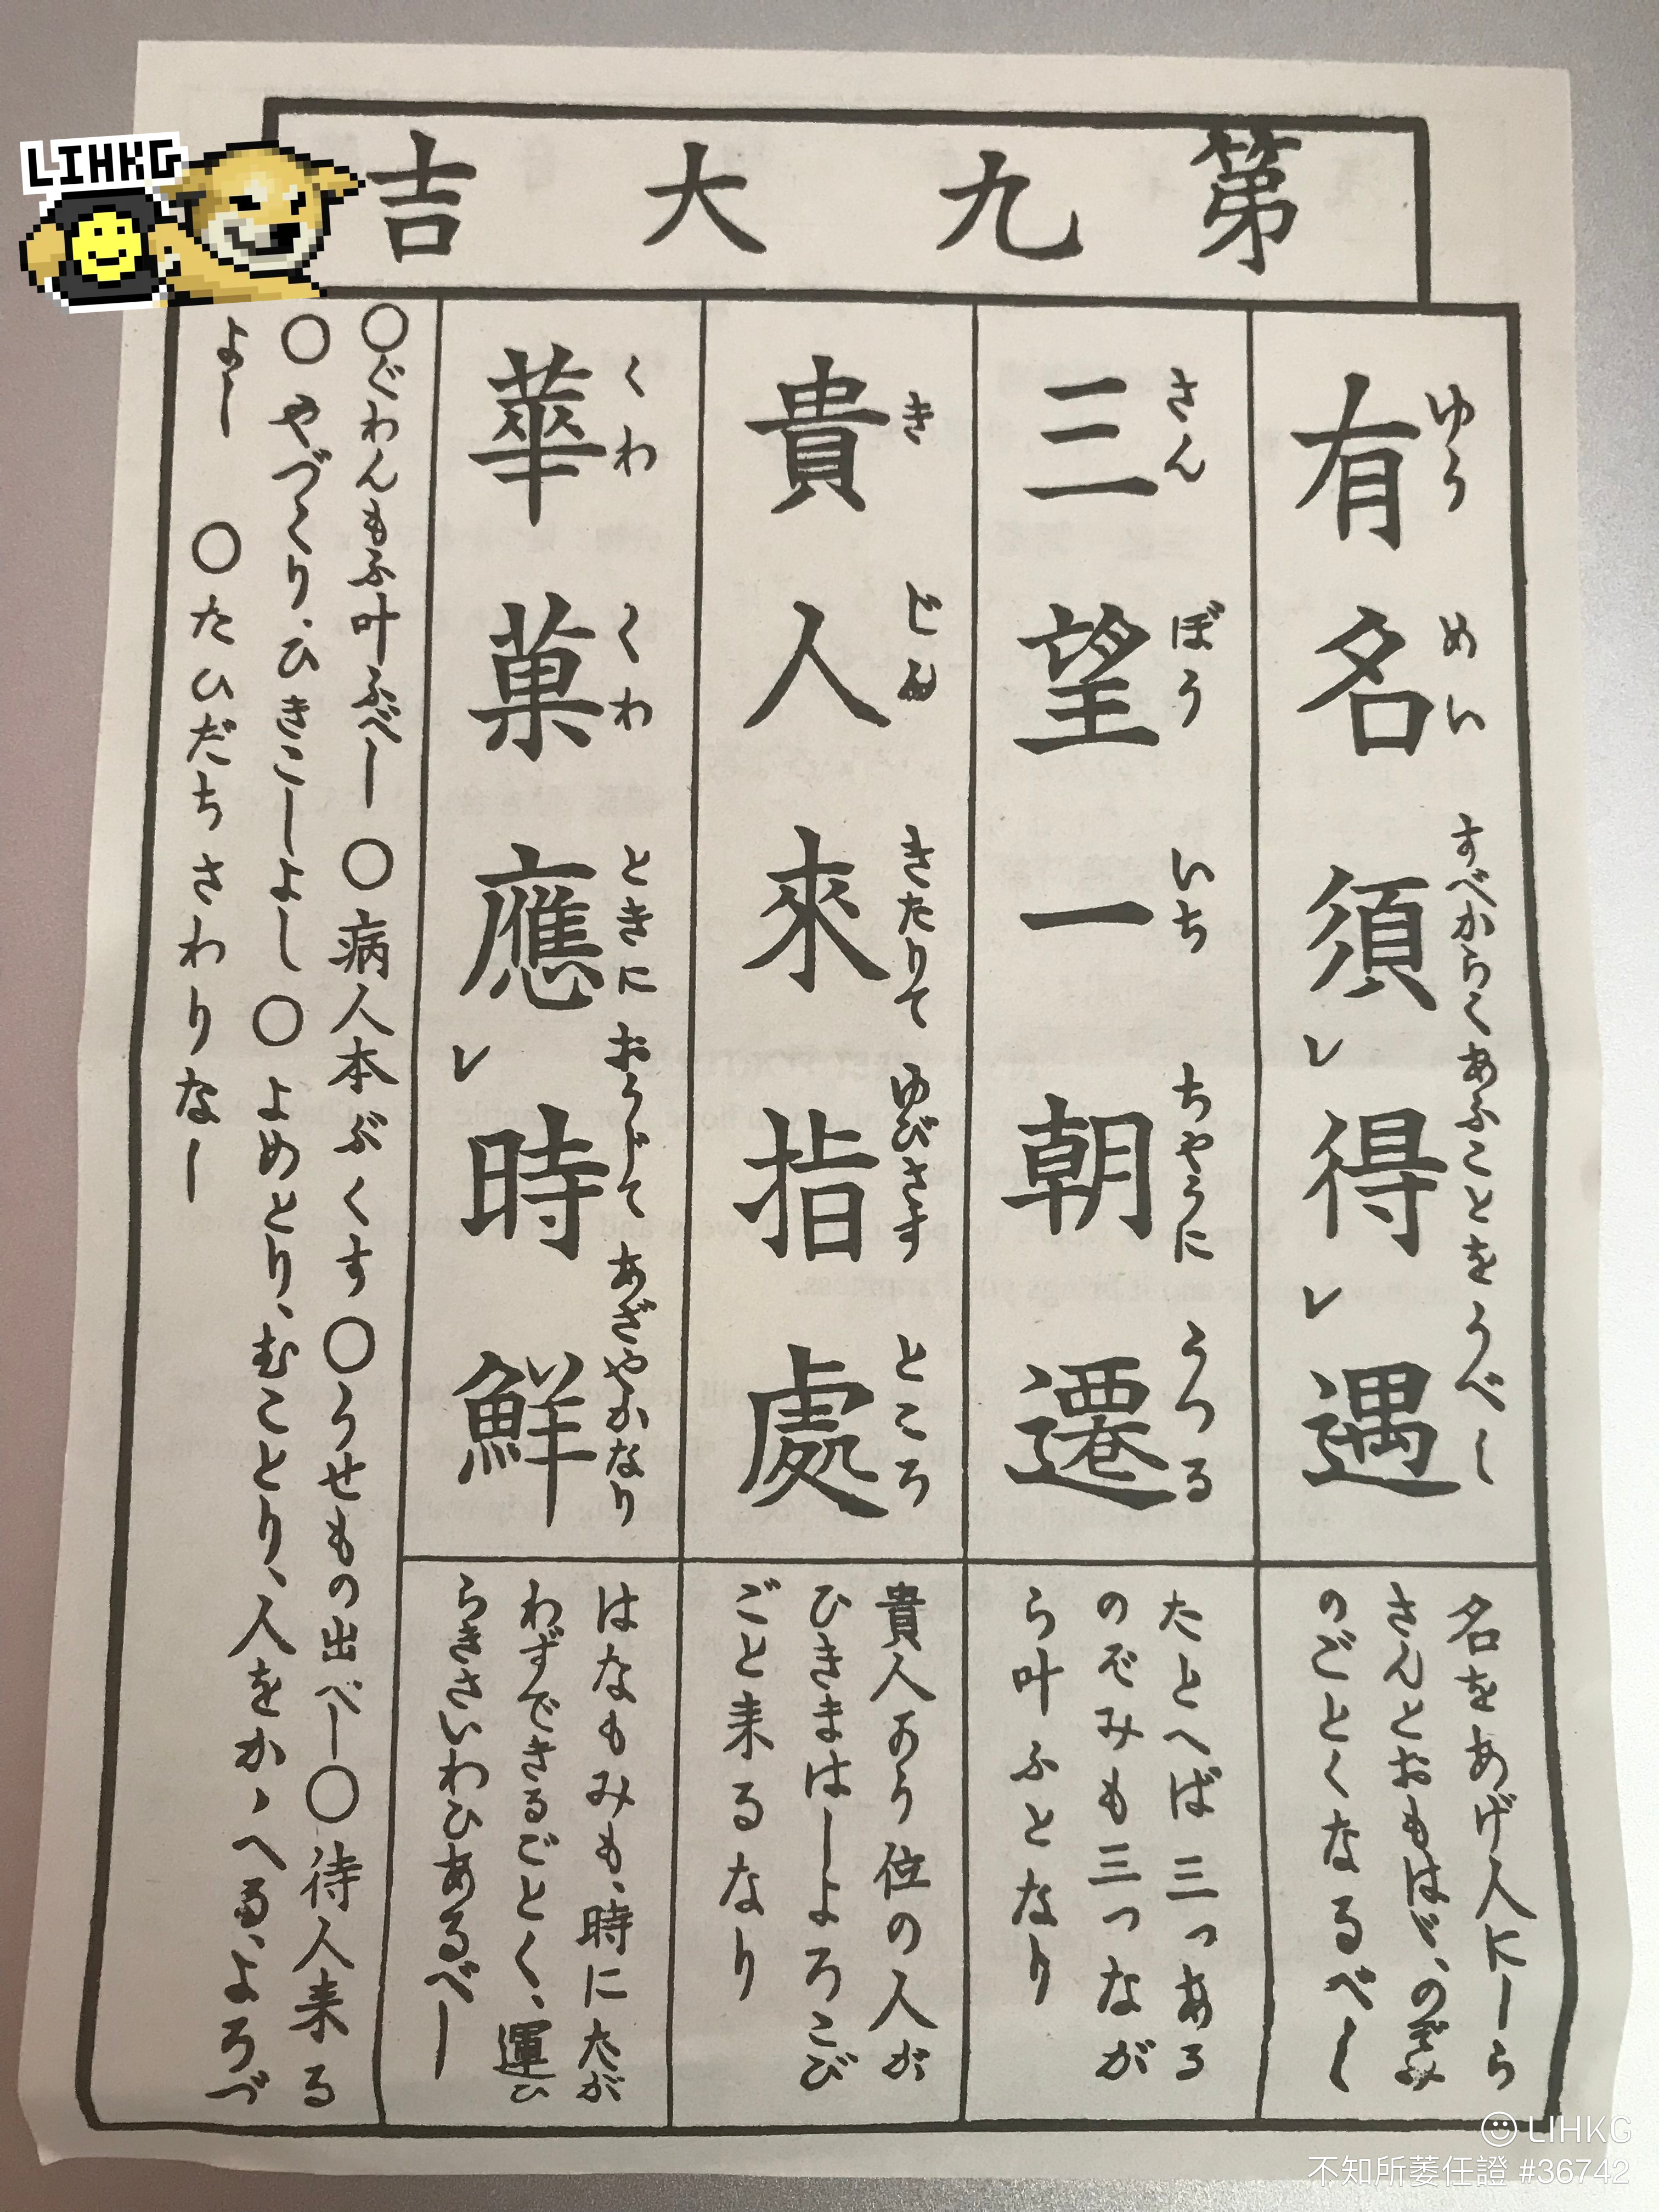 LIHKG
第九大吉
有名須レ得レ遇
ゆうめいすべからくあふことをうべし
名をあげ人にしら
さんとおもはゞ、のぞみ
のごとくなるべし
三望一朝遷
さんぼういちちやうにうつる
たとへば三つある
のぞみも三つなが
ら叶ふとなり
貴人來指處
きじんきたりてゆびさすところ
貴人かう位の人が
ひきまはしよろこび
ごと来るなり
華菓應レ時鮮
くわくわときにおうじてあざやかなり
はなもみも、時にたが
わずできるごとく、運ひ
らきさいわひあるべし
○ぐわんもふ叶ふべし ○病人本ぷくす ○うせもの出べし ○待人来る
○やづくり、ひきこしよし ○よめとり、むことり、人をかゝへるも、よろづ
よし ○たひだちさわりなし
LIHKG
不知所萎任證 #36742